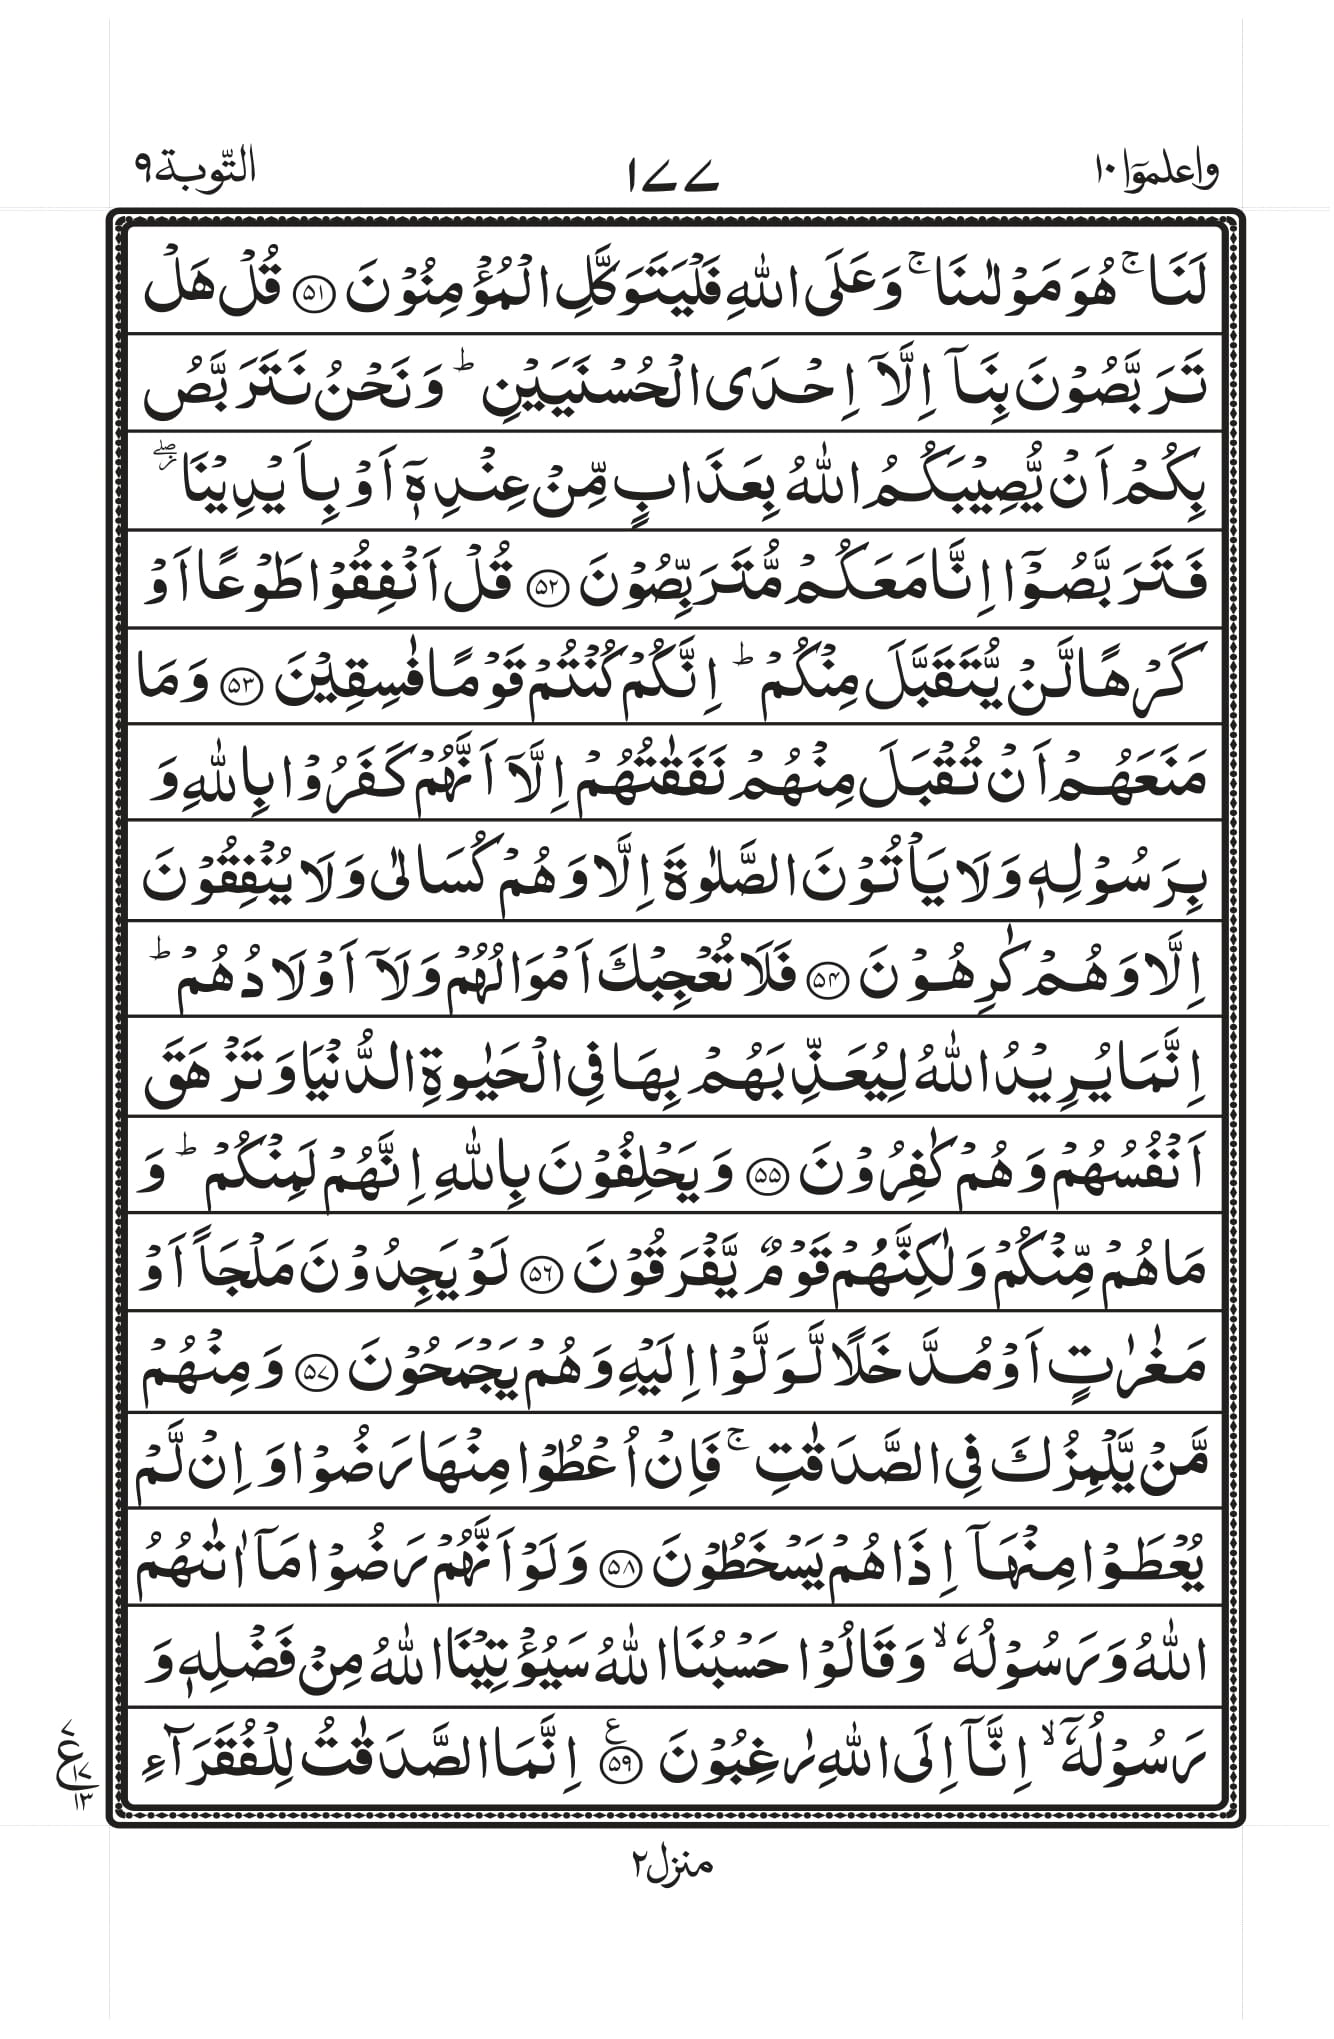 واعلموٓا ۱۰
۱۷۷
التّوبة ۹
لَنَا ۚ هُوَ مَوْلٰىنَا ۚ وَعَلَى اللّٰهِ فَلْيَتَوَكَّلِ الْمُؤْمِنُوْنَ ﴿۵۱﴾ قُلْ هَلْ
تَرَبَّصُوْنَ بِنَاۤ اِلَّاۤ اِحْدَى الْحُسْنَيَيْنِ ؕ وَنَحْنُ نَتَرَبَّصُ
بِكُمْ اَنْ يُّصِيْبَكُمُ اللّٰهُ بِعَذَابٍ مِّنْ عِنْدِهٖۤ اَوْ بِاَيْدِيْنَا ۖز
فَتَرَبَّصُوْۤا اِنَّا مَعَكُمْ مُّتَرَبِّصُوْنَ ﴿۵۲﴾ قُلْ اَنْفِقُوْا طَوْعًا اَوْ
كَرْهًا لَّنْ يُّتَقَبَّلَ مِنْكُمْ ؕ اِنَّكُمْ كُنْتُمْ قَوْمًا فٰسِقِيْنَ ﴿۵۳﴾ وَمَا
مَنَعَهُمْ اَنْ تُقْبَلَ مِنْهُمْ نَفَقٰتُهُمْ اِلَّاۤ اَنَّهُمْ كَفَرُوْا بِاللّٰهِ وَ
بِرَسُوْلِهٖ وَلَا يَاْتُوْنَ الصَّلٰوةَ اِلَّا وَهُمْ كُسَالٰى وَلَا يُنْفِقُوْنَ
اِلَّا وَهُمْ كٰرِهُوْنَ ﴿۵۴﴾ فَلَا تُعْجِبْكَ اَمْوَالُهُمْ وَلَاۤ اَوْلَادُهُمْ ؕ
اِنَّمَا يُرِيْدُ اللّٰهُ لِيُعَذِّبَهُمْ بِهَا فِى الْحَيٰوةِ الدُّنْيَا وَتَزْهَقَ
اَنْفُسُهُمْ وَهُمْ كٰفِرُوْنَ ﴿۵۵﴾ وَيَحْلِفُوْنَ بِاللّٰهِ اِنَّهُمْ لَمِنْكُمْ ؕ وَ
مَا هُمْ مِّنْكُمْ وَلٰكِنَّهُمْ قَوْمٌ يَّفْرَقُوْنَ ﴿۵۶﴾ لَوْ يَجِدُوْنَ مَلْجَاً اَوْ
مَغٰرٰتٍ اَوْ مُدَّخَلًا لَّوَلَّوْا اِلَيْهِ وَهُمْ يَجْمَحُوْنَ ﴿۵۷﴾ وَمِنْهُمْ
مَّنْ يَّلْمِزُكَ فِى الصَّدَقٰتِ ۚ فَاِنْ اُعْطُوْا مِنْهَا رَضُوْا وَاِنْ لَّمْ
يُعْطَوْا مِنْهَاۤ اِذَا هُمْ يَسْخَطُوْنَ ﴿۵۸﴾ وَلَوْ اَنَّهُمْ رَضُوْا مَاۤ اٰتٰىهُمُ
اللّٰهُ وَرَسُوْلُهٗ ۙ وَقَالُوْا حَسْبُنَا اللّٰهُ سَيُؤْتِيْنَا اللّٰهُ مِنْ فَضْلِهٖ وَ
رَسُوْلُهٗۤ ۙ اِنَّاۤ اِلَى اللّٰهِ رٰغِبُوْنَ ﴿۵۹﴾ ع اِنَّمَا الصَّدَقٰتُ لِلْفُقَرَآءِ
۷
ع ۱۷
۱۳
منزل ۲